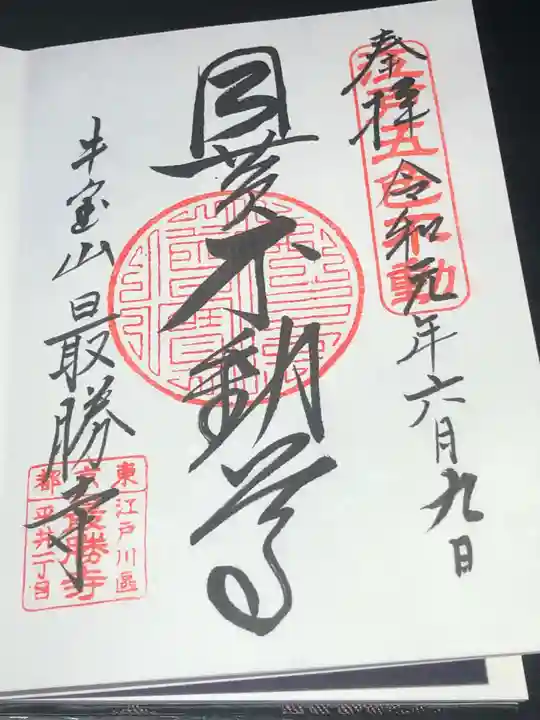 奉拝 令和元年六月九日
江戸五色不動
目黄不動尊
牛宝山最勝寺
東京都
江戸川區
平井一丁目
最勝寺